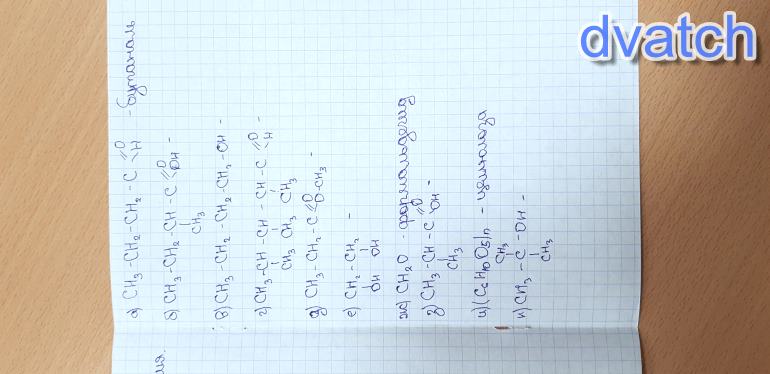 dvatch
ия.
а) CH₃-CH₂-CH₂-C=O H - бутаналь
б) CH₃-CH₂-CH-C=O OH -
CH₃
в) CH₃-CH₂-CH₂-CH₂-OH -
г) CH₃-CH-CH-CH-C=O H -
CH₃ CH₃ CH₃
д) CH₃-CH₂-C=O O-CH₃ -
е) CH₂-CH₂ -
OH OH
ж) CH₂O - формальдегид
з) CH₃-CH-C=O OH -
CH₃
и) (C₆H₁₀O₅)n - целлюлоза
CH₃
к) CH₃-C-OH -
CH₃